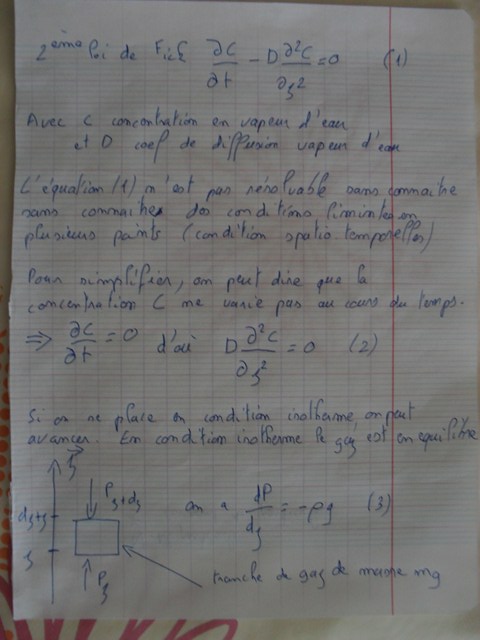 2ème loi de Fick ∂C/∂t - D ∂²C/∂z² = 0 (1)
Avec C concentration en vapeur d'eau
et D coef de diffusion vapeur d'eau
L'équation (1) n'est pas résolvable sans connaitre
sans connaitre des conditions limintes en
plusieurs points (condition spatio temporelles)
Pour simplifier, on peut dire que la
concentration C ne varie pas au cours du temps.
⇒ ∂C/∂t = 0 d'où D ∂²C/∂z² = 0 (2)
Si on ne place en condition isotherme, on peut
avancer. En condition isotherme le gaz est en équilibre
z
P z+dz
dz+z
on a dP/dz = -ρg (3)
z
Pz
tranche de gaz de masse mg